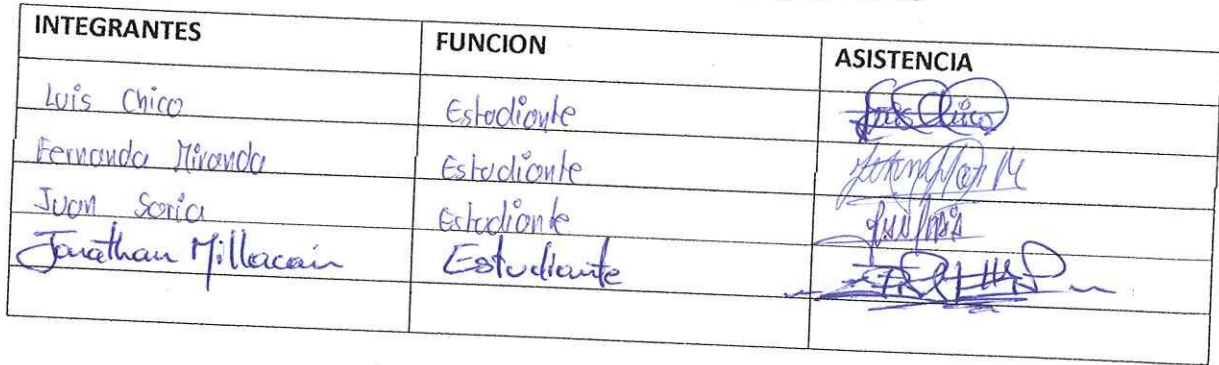 INTEGRANTES FUNCION ASISTENCIA
Luis Chico Estudiante Luis Chico
Fernanda Miranda Estudiante
Juan Soria Estudiante
Jonathan Estudiante